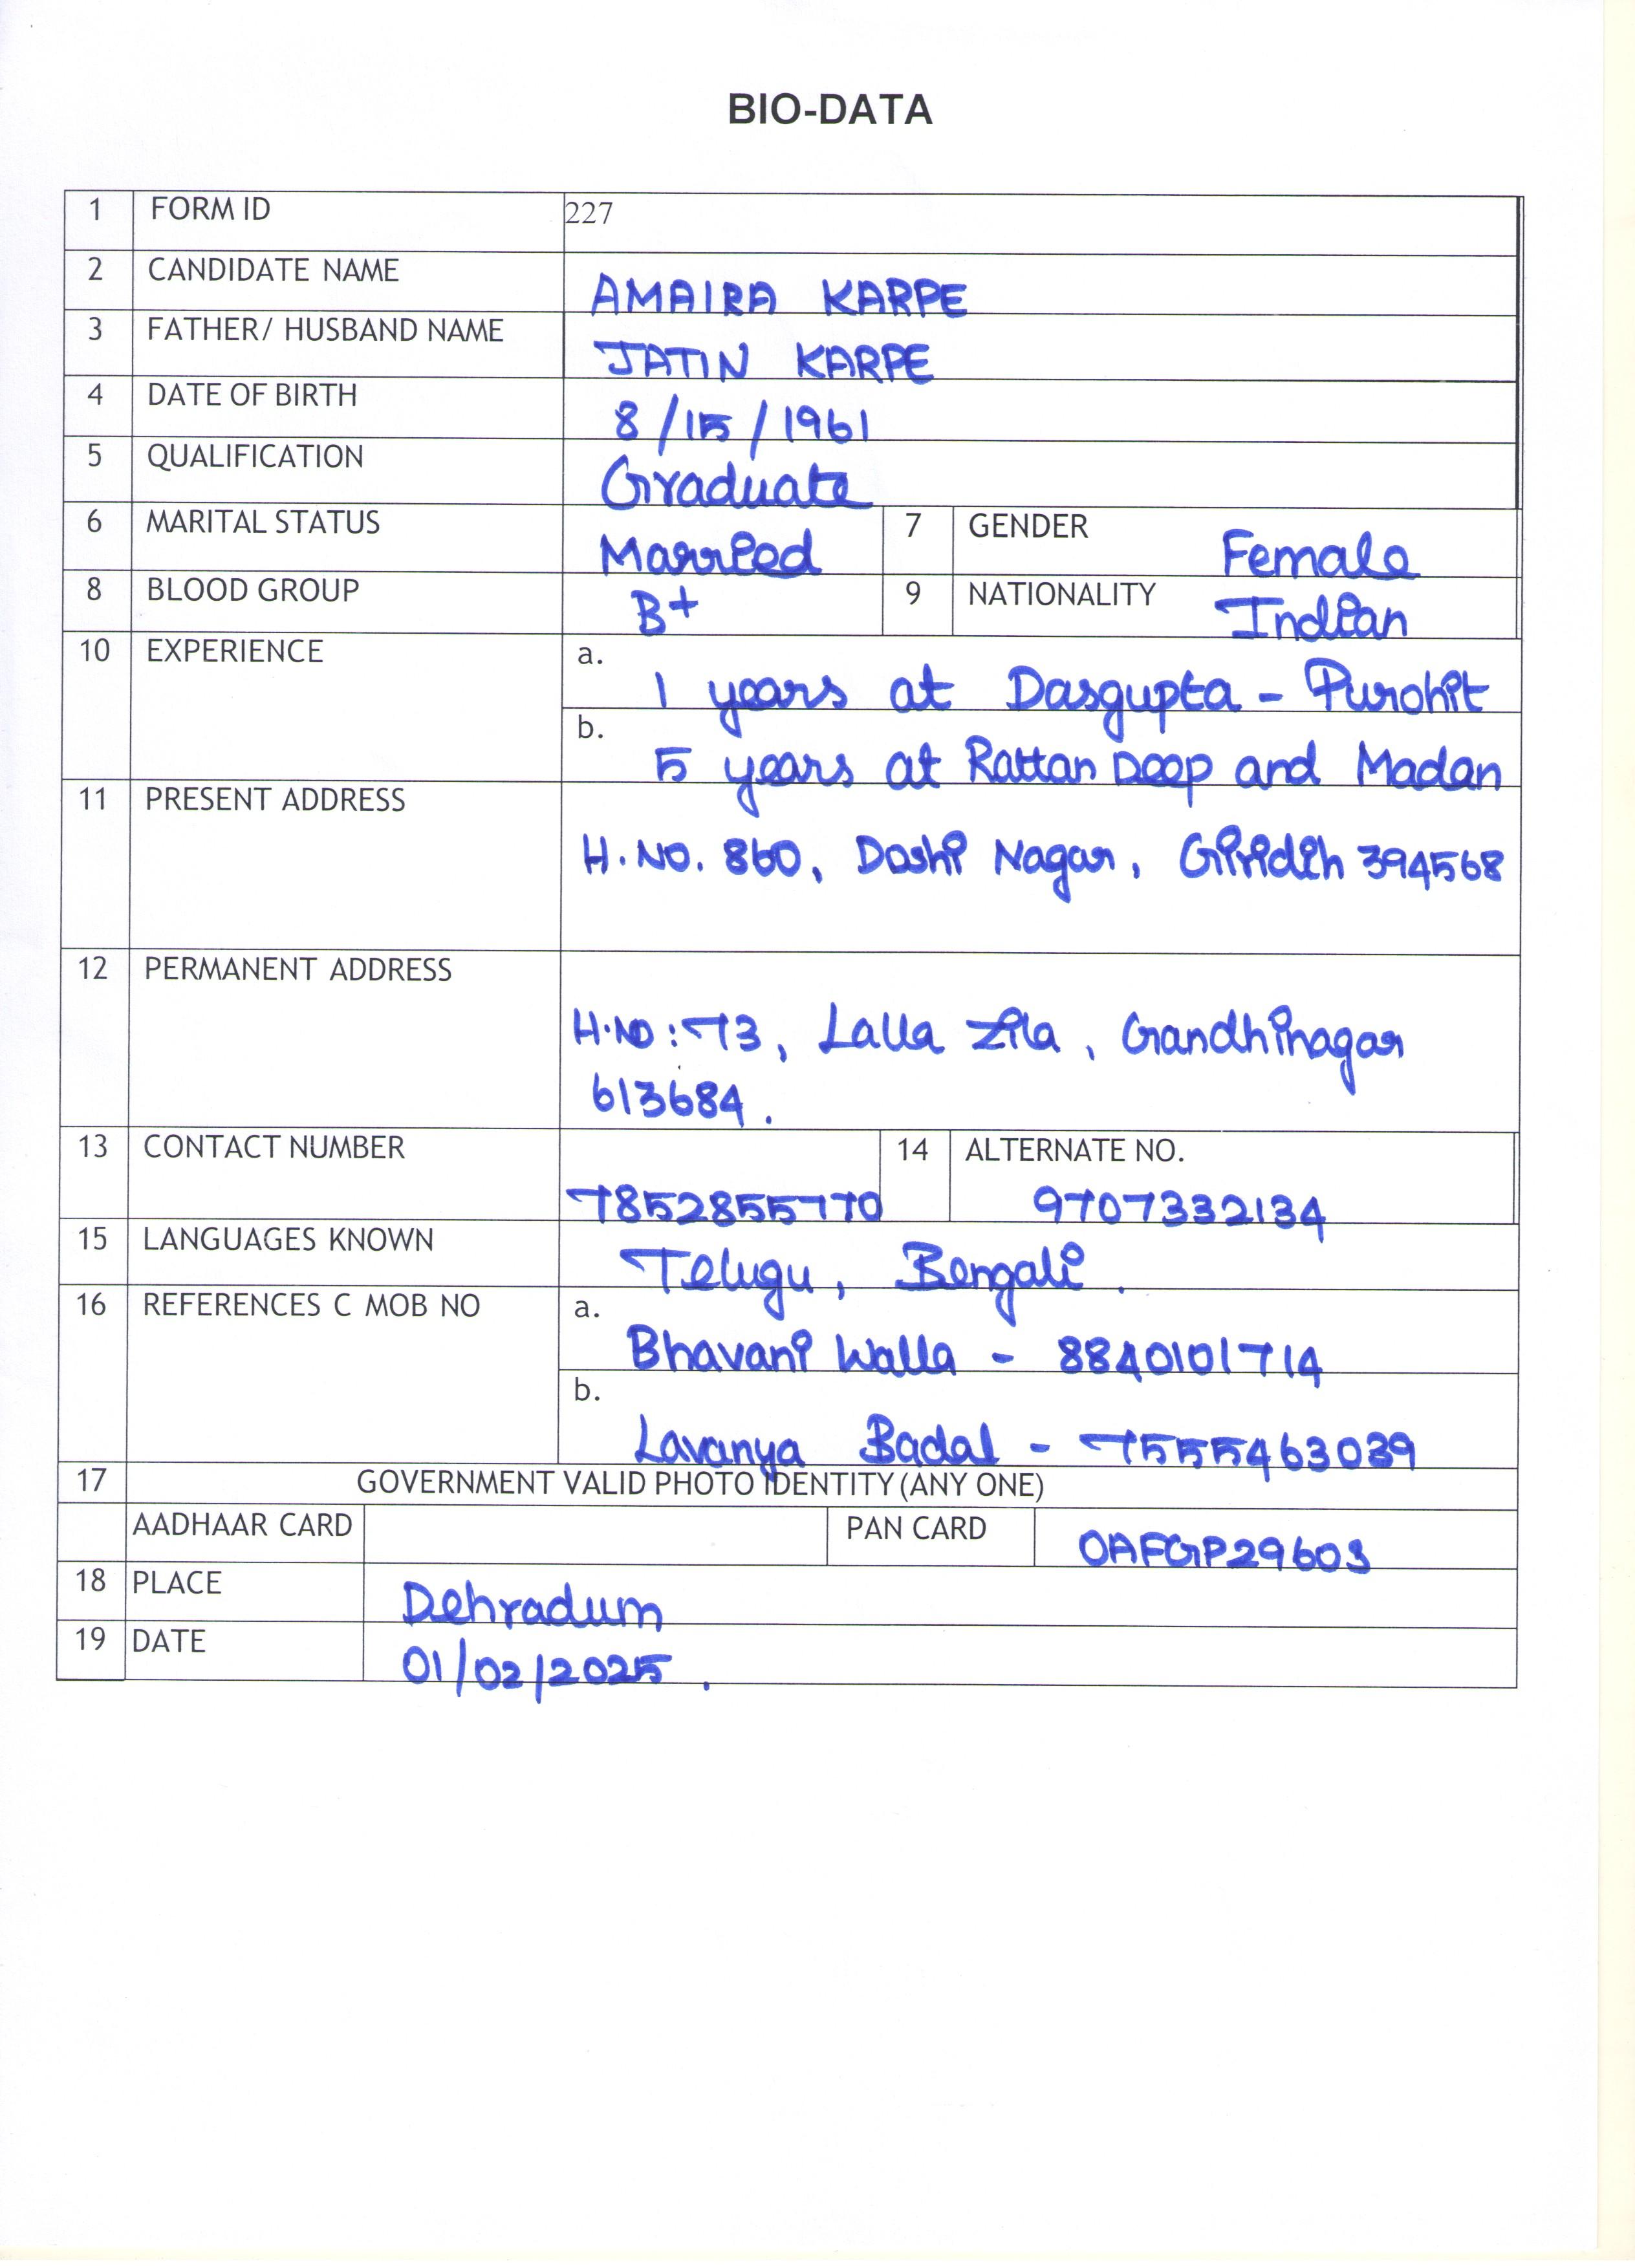 BIO-DATA
1 FORM ID 227
2 CANDIDATE NAME AMAIRA KARPE
3 FATHER/ HUSBAND NAME JATIN KARPE
4 DATE OF BIRTH 8/15/1961
5 QUALIFICATION Graduate
6 MARITAL STATUS Married 7 GENDER Female
8 BLOOD GROUP B+ 9 NATIONALITY Indian
10 EXPERIENCE a. 1 years at Dasgupta - Purohit
b. 5 years at Rattan Deep and Madan
11 PRESENT ADDRESS
H.NO. 860, Doshi Nagar, Giridih 394568
12 PERMANENT ADDRESS
H.NO:73, Lalla Zila, Gandhinagar
613684.
13 CONTACT NUMBER 7852855770 14 ALTERNATE NO. 9707332134
15 LANGUAGES KNOWN Telugu, Bengali.
16 REFERENCES C MOB NO a. Bhavani Walla - 8840101714
b. Lavanya Badal - 7555463039
17 GOVERNMENT VALID PHOTO IDENTITY (ANY ONE)
AADHAAR CARD PAN CARD OAFGP2960J
18 PLACE Dehradum
19 DATE 01/02/2025.